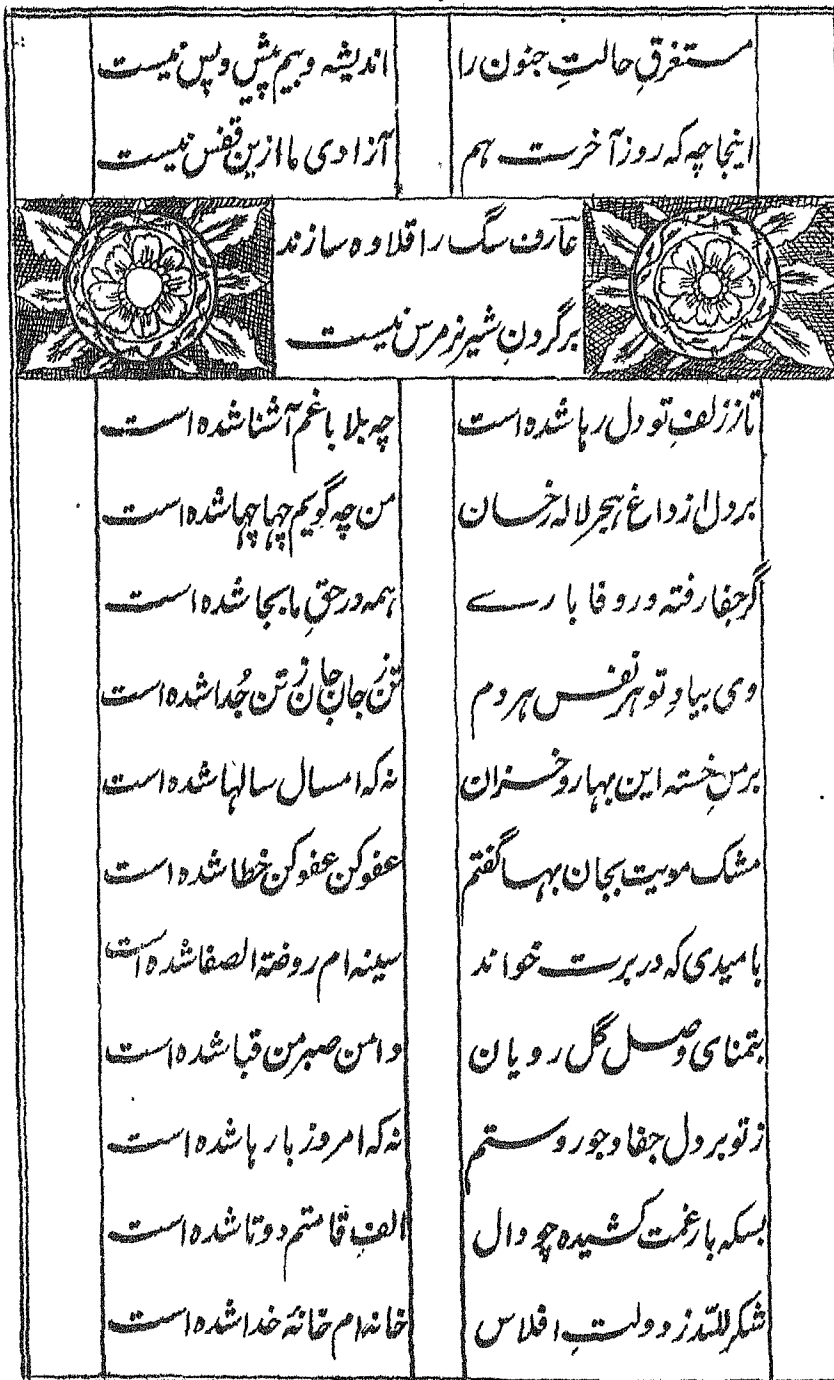 مستغرقِ حالتِ جنون را اندیشہ و بیم پیش و پس نیست
اینجا چہ کہ روز آخرت ہم آزادی ما ازین قفس نیست
عارف سگ را قلاوہ سازند
برگردنِ شیر نر مرس نیست
تا ز زلفِ تو دل رہا شدہ است چہ بلا با غم آشنا شدہ است
بر دل از داغ ہجر لالہ رخسان من چہ گویم چہا چہا شدہ است
گر جفا رفتہ ور وفا بارے ہمہ در حقِ ما بجا شدہ است
دمی بیادِ تو ہر نفس ہر دم تن ز جان جان ز تن جُدا شدہ است
بر منِ خستہ این بہار و خزان نہ کہ امسال سالہا شدہ است
مشک مویت بجان بہا گفتم عفو کن عفو کن خطا شدہ است
بامیدی کہ در برت خواند سینہ ام روضۃ الصفا شدہ است
بتمنای وصل گل رویان دامن صبر من قبا شدہ است
ز تو بر دل جفا و جور و ستم نہ کہ امروز بارہا شدہ است
بسکہ بار غمت کشیدہ چو دال الفِ قامتم دوتا شدہ است
شکر للّٰہ ز دولتِ افلاس خانہ ام خانۂ خدا شدہ است